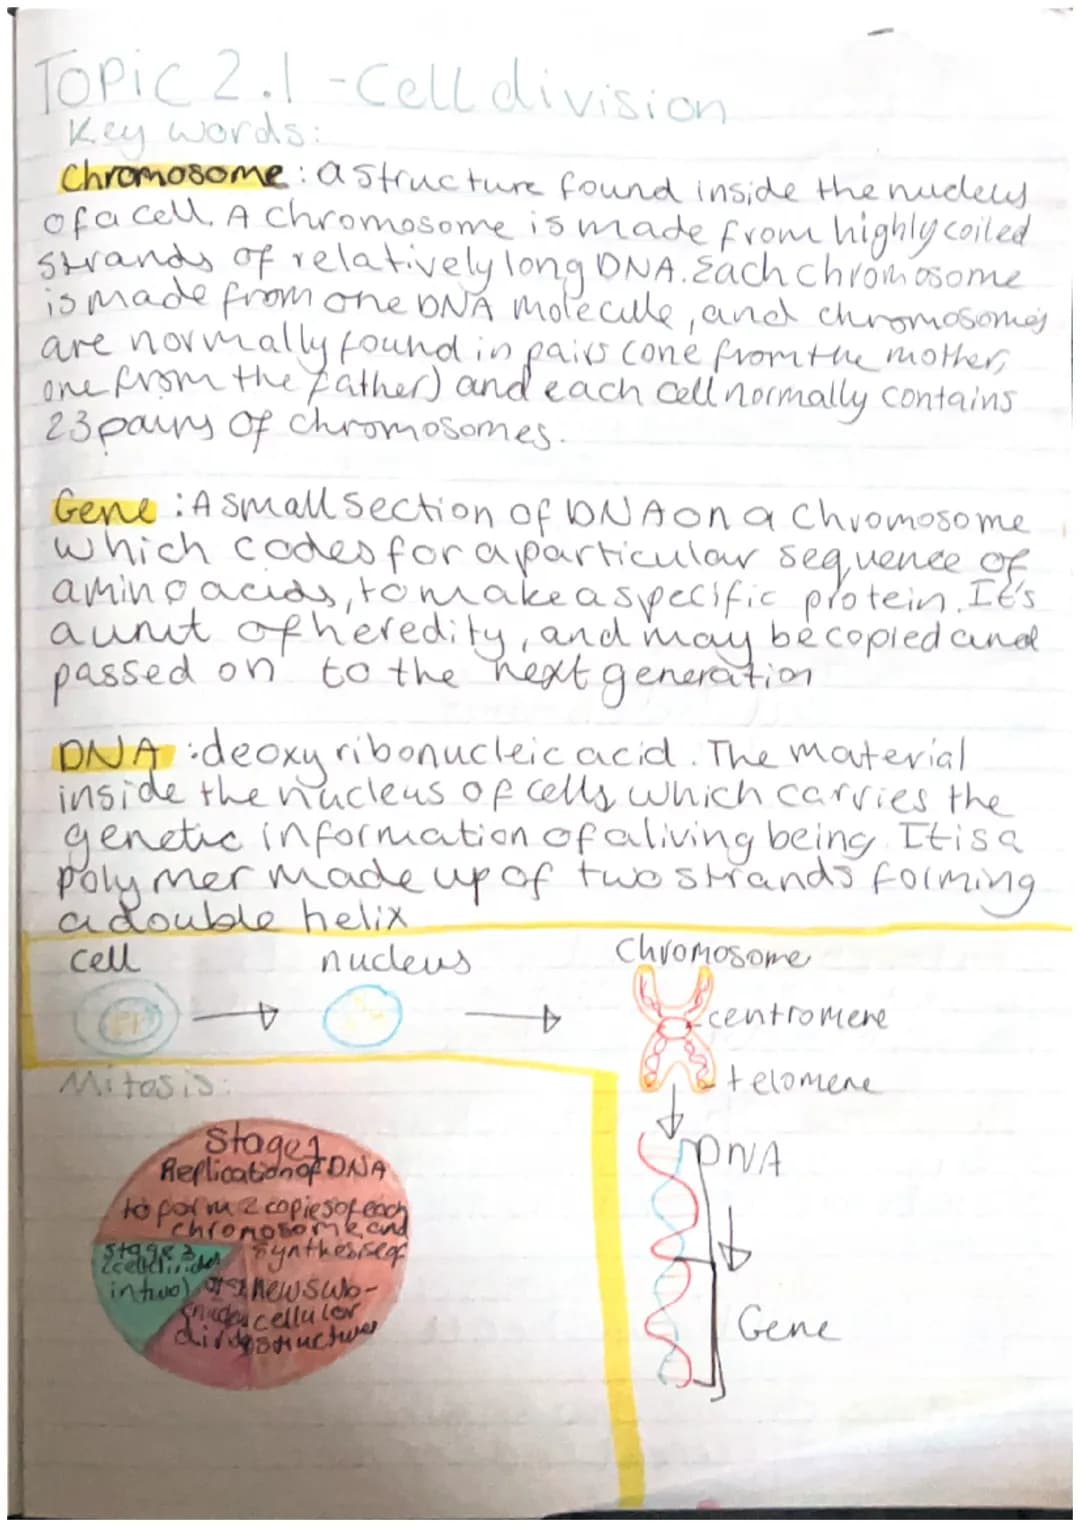 Topic 2.1 - Cell division
Key words:
Chromosome: a structure found inside the nucleus
of a cell. A chromosome is made from highly coiled
strands of relatively long DNA. Each chromosome
is made from one DNA molecule, and chromosomes
are normally found in pairs (one from the mother,
one from the father) and each cell normally contains
23 pairs of chromosomes.
Gene: A small section of DNA on a chromosome
which codes for a particular sequence of
amino acids, to make a specific protein. It's
a unit of heredity, and may be copied and
passed on to the next generation
DNA: deoxyribonucleic acid. The material
inside the nucleus of cells, which carries the
genetic information of a living being. It is a
polymer made up of two strands forming
a double helix
cell nucleus Chromosome
centromere
telomere
Mitosis:
DNA
Gene
Stage 1
Replication of DNA
to form 2 copies of each
chromosome and
synthesis of
new sub-
cellular
structures
Stage 3
in two)